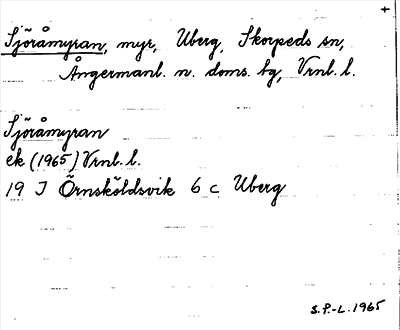 Sjöråmyran, myr, Uberg, Skorpeds sn,
Ångermanl. n. doms. bg, Vrnl. l.
Sjöråmyran
ek (1965) Vrnl. l.
19 J Örnsköldsvik 6 c Uberg
S.P.-L. 1965